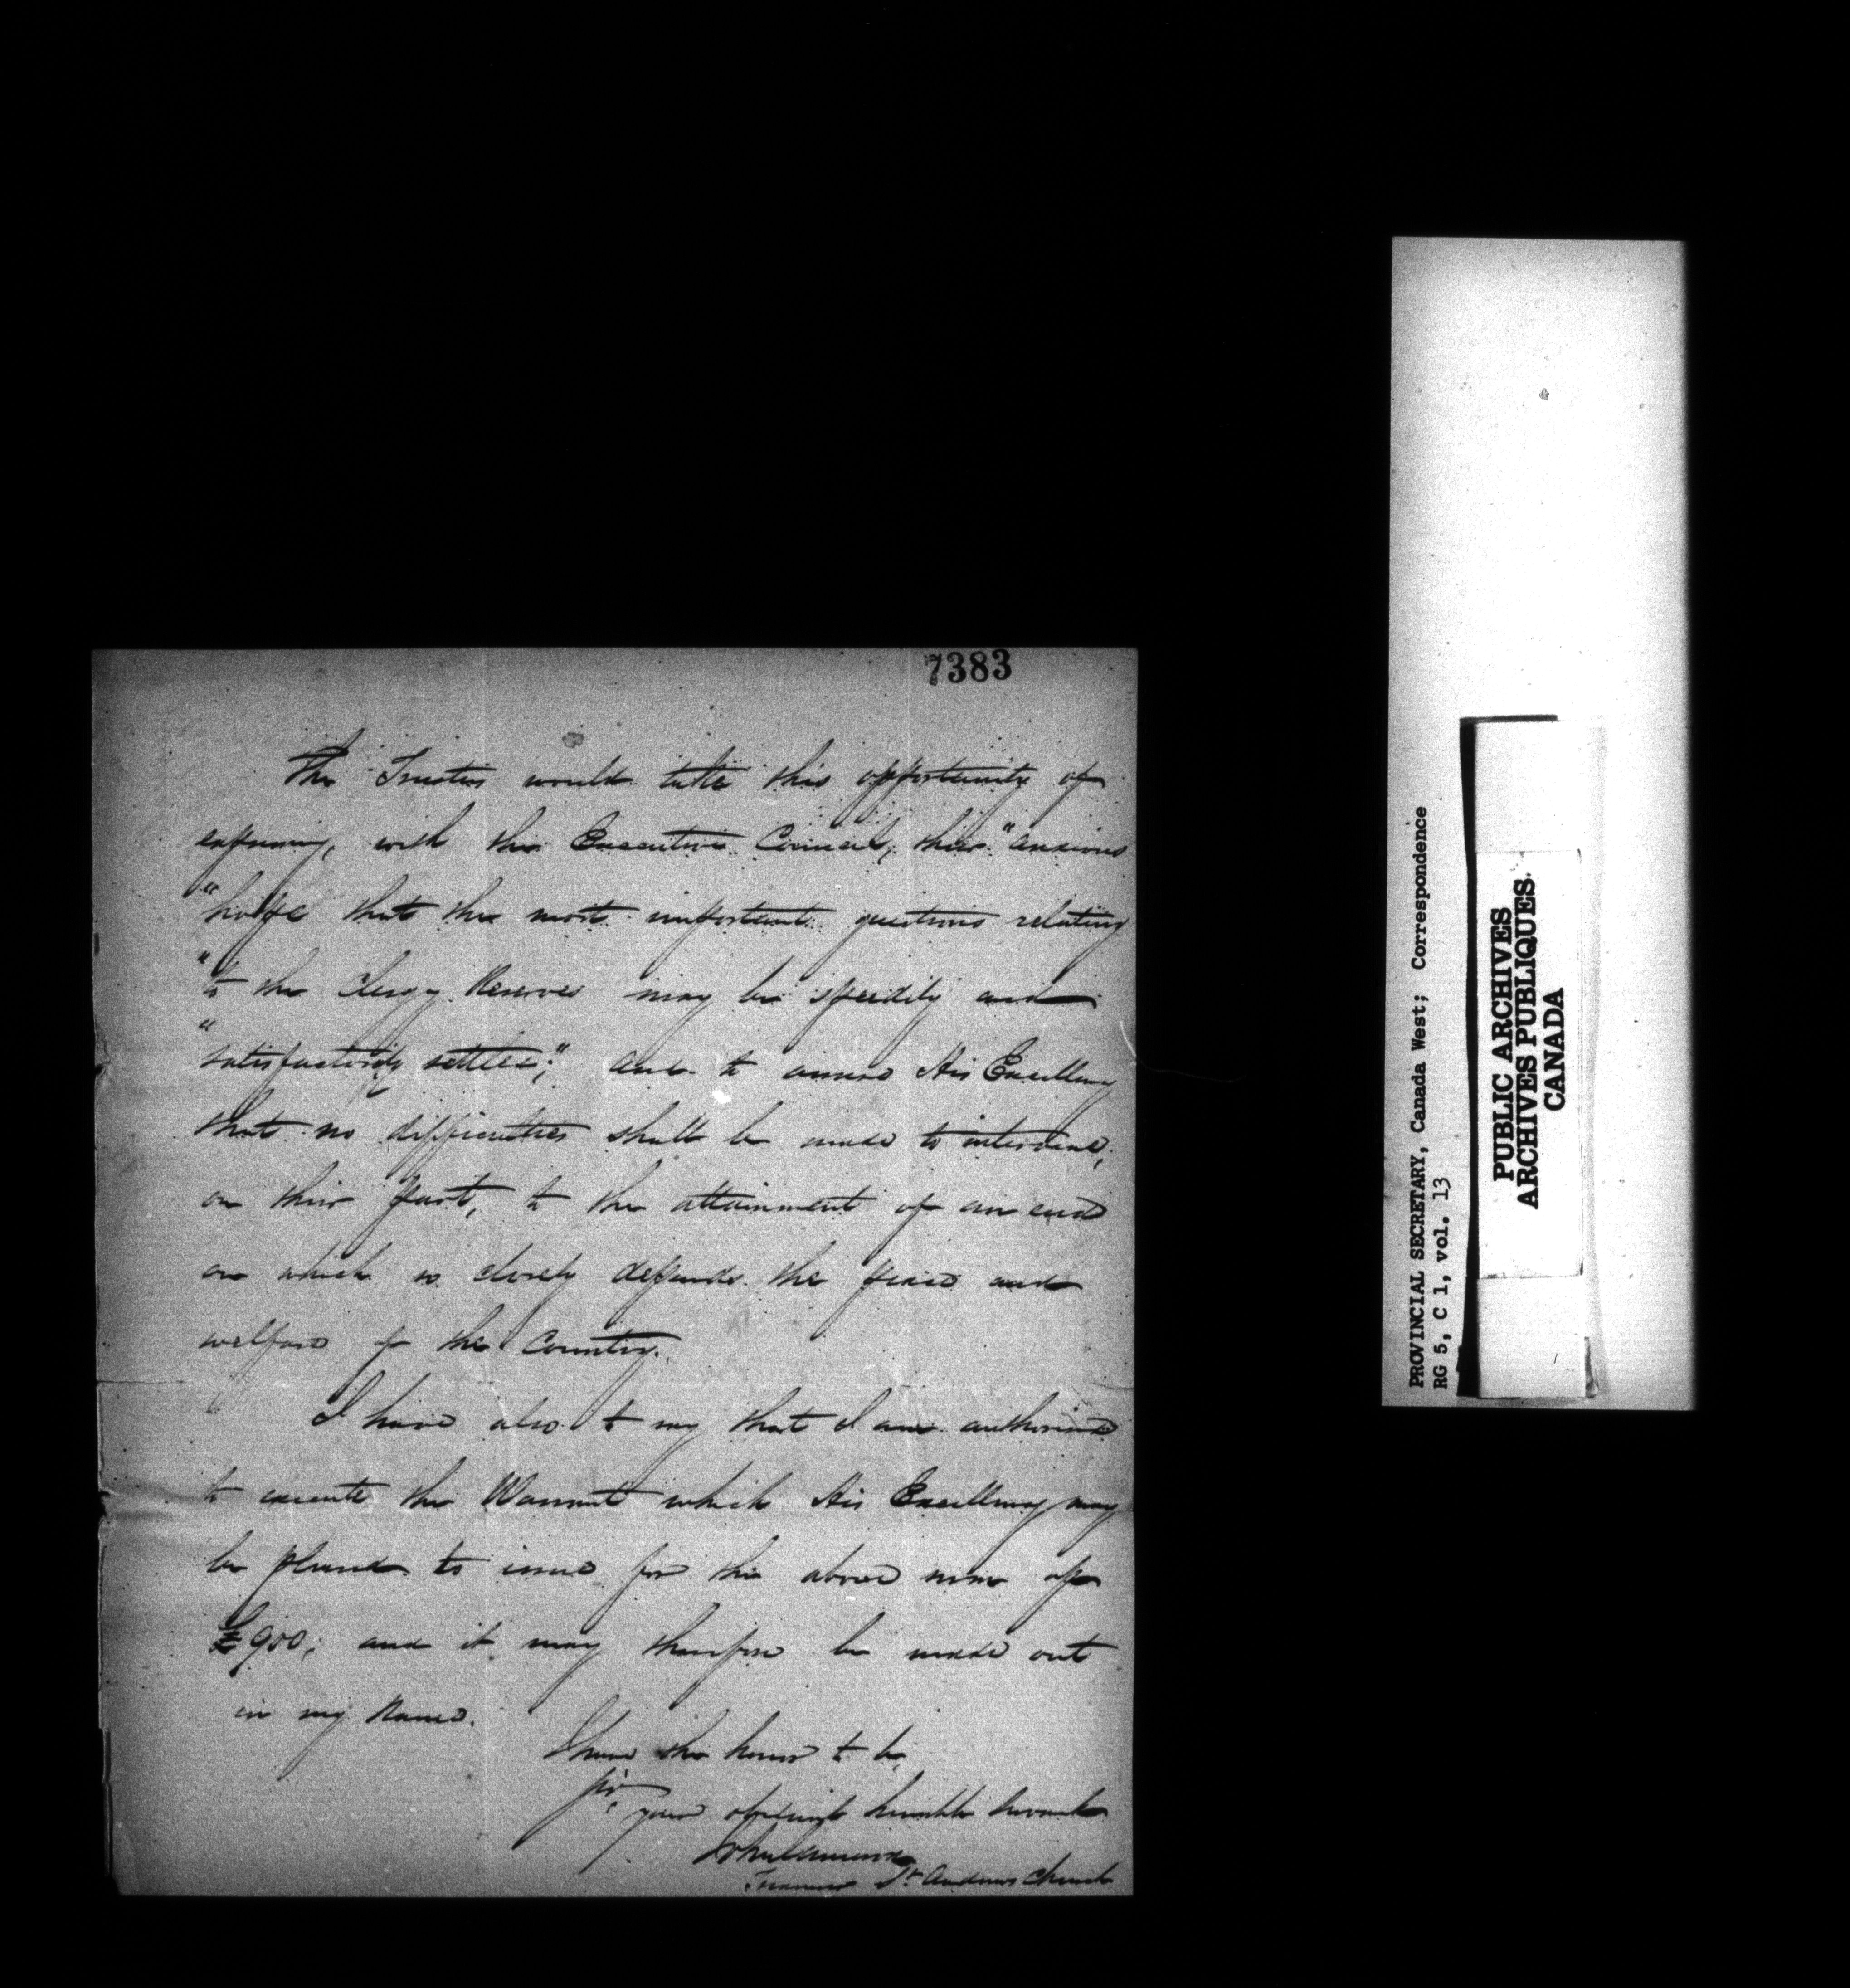 7383
The Trustees would take this opportunity of
expressing, with the Executive Council, their "anxious
"hope that the most important questions relating
"to the Clergy Reserves may be speedily and
"satisfactorily settled;" and to assure His Excellency
that no difficulties shall be made to intervene,
on their part, to the attainment of an end
on which so closely depends the peace and
welfare of the Country.
I have also to say that I am authorised
to execute the Warrant which His Excellency may
be pleased to issue for the above sum of
£900; and it may therefore be made out
in my name.
I have the honor to be,
Sir,
your obedient humble servant
John Cameron
Treasurer St Andrews Church
PROVINCIAL SECRETARY, Canada West; Correspondence
RG 5, C 1, vol. 13
PUBLIC ARCHIVES
ARCHIVES PUBLIQUES
CANADA